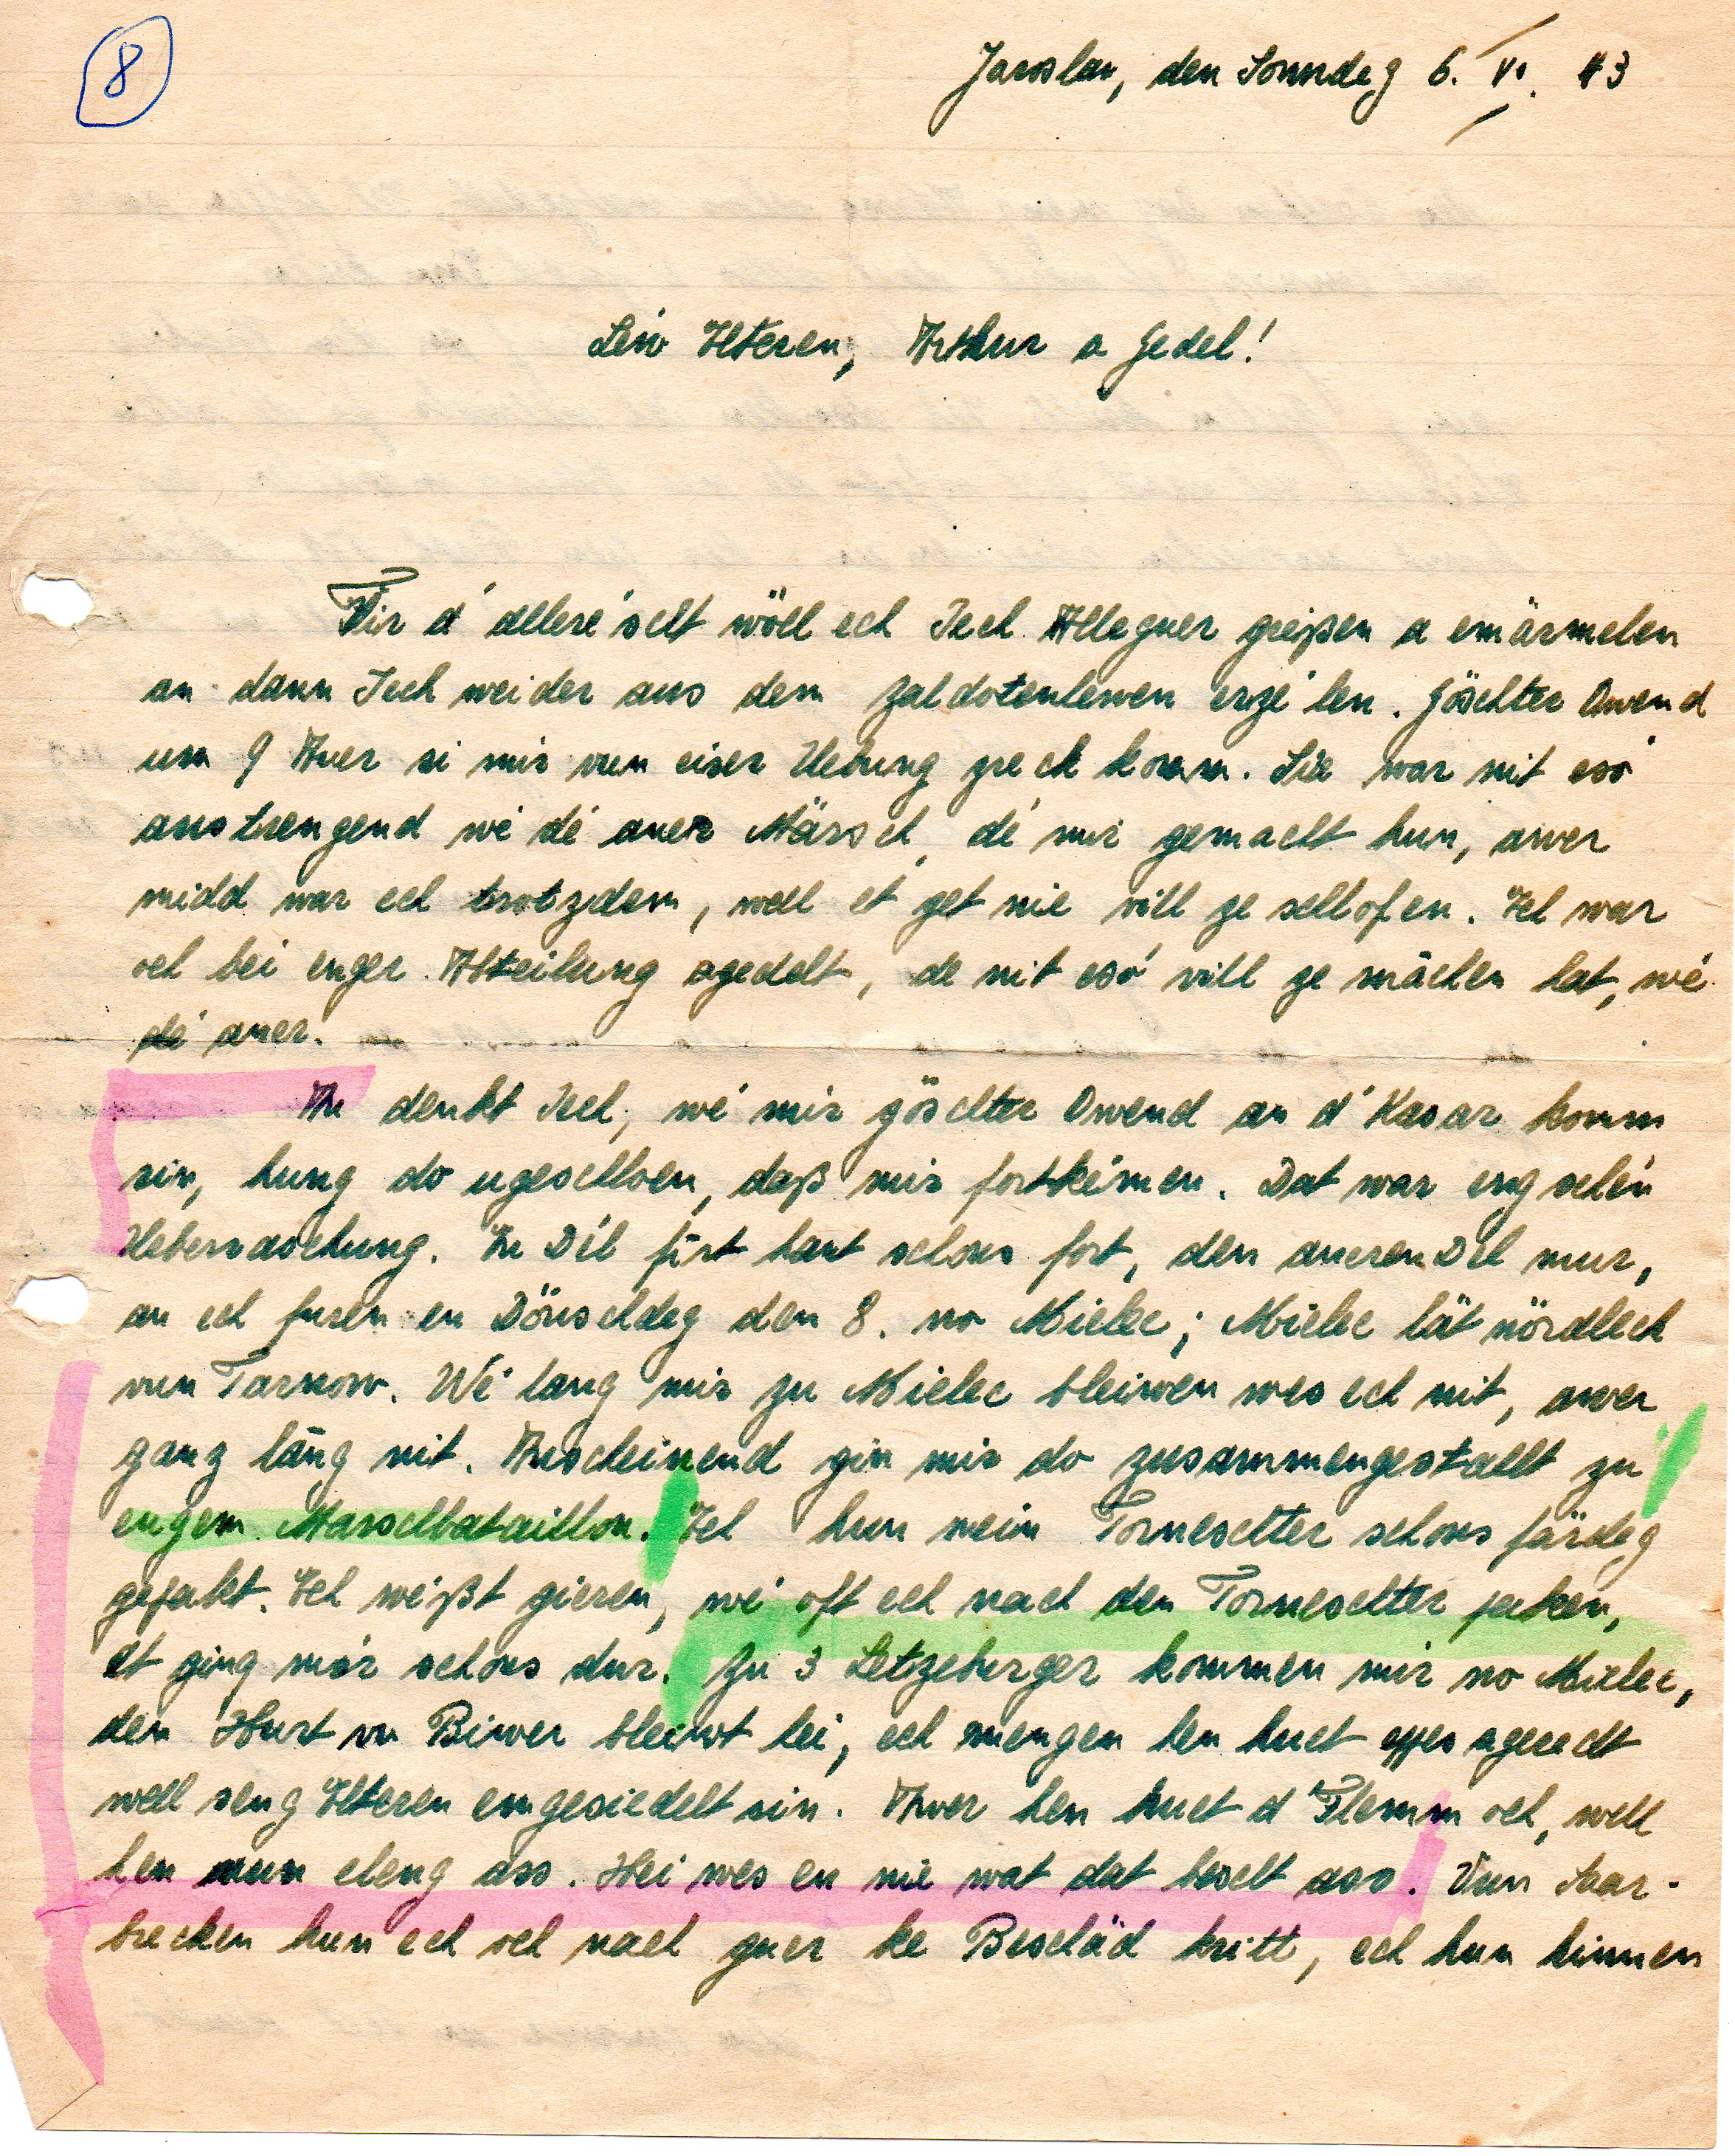 8
Jaroslau, den Sonndeg 6. VI. 43
Léiw Elteren, Arthur a Gedel!
Fir d'alleréischt wöll ech Iech Alleguer greißen a emärmelen
an dann Iech weider aus dem Zaldotenlewen erzélen. Göschter Owend
um 9 Auer si mir vun eiser Uebung zreck komm. Sie war nit esó
anstrengend wé dé aner Märsch, dé mir gemacht hun, awer
midd war ech trotzdem, well et get nie vill ze schlofen. Ech war
och bei enger Abteilung agedelt, de nit esó vill ze mächen hat, wé
dé aner.
An denkt Iech, wé mir göschter Owend an d'Kasär komm
sin, hung do ugeschloen, daß mir fortkéimen. Dat war eng schéin
Ueberraschung. En Dél fiert haut schons fort, den aneren Dél mur,
an ech furen en Dönschdeg den 8. no Mielec; Mielec lät nördlech
vun Tarnow. Wé lang mir zu Mielec bleiwen wes ech nit, awer
ganz läng nit. Anscheinend gin mir do zusammengestallt zu
engem Marschbataillon. Ech hun mein Torneschter schons färdeg
gepakt. Ech wéißt gieren, wé oft ech nach den Tornescher paken,
et ging mór schons dur. Zu 3 Letzeburger kommen mir no Mielec,
den Hurt vu Biwer bleiwt hei, ech mengen hen huet eppes ageredt
well seng Elteren emgesiedelt sin. Awer hen huet d'Flemm och, well
hen nun eleng ass. Hei wes en nie wat dat bescht ass. Vun Saar-
brecken hun ech och nach guer ke Beschäd kritt, ech hun hinnen